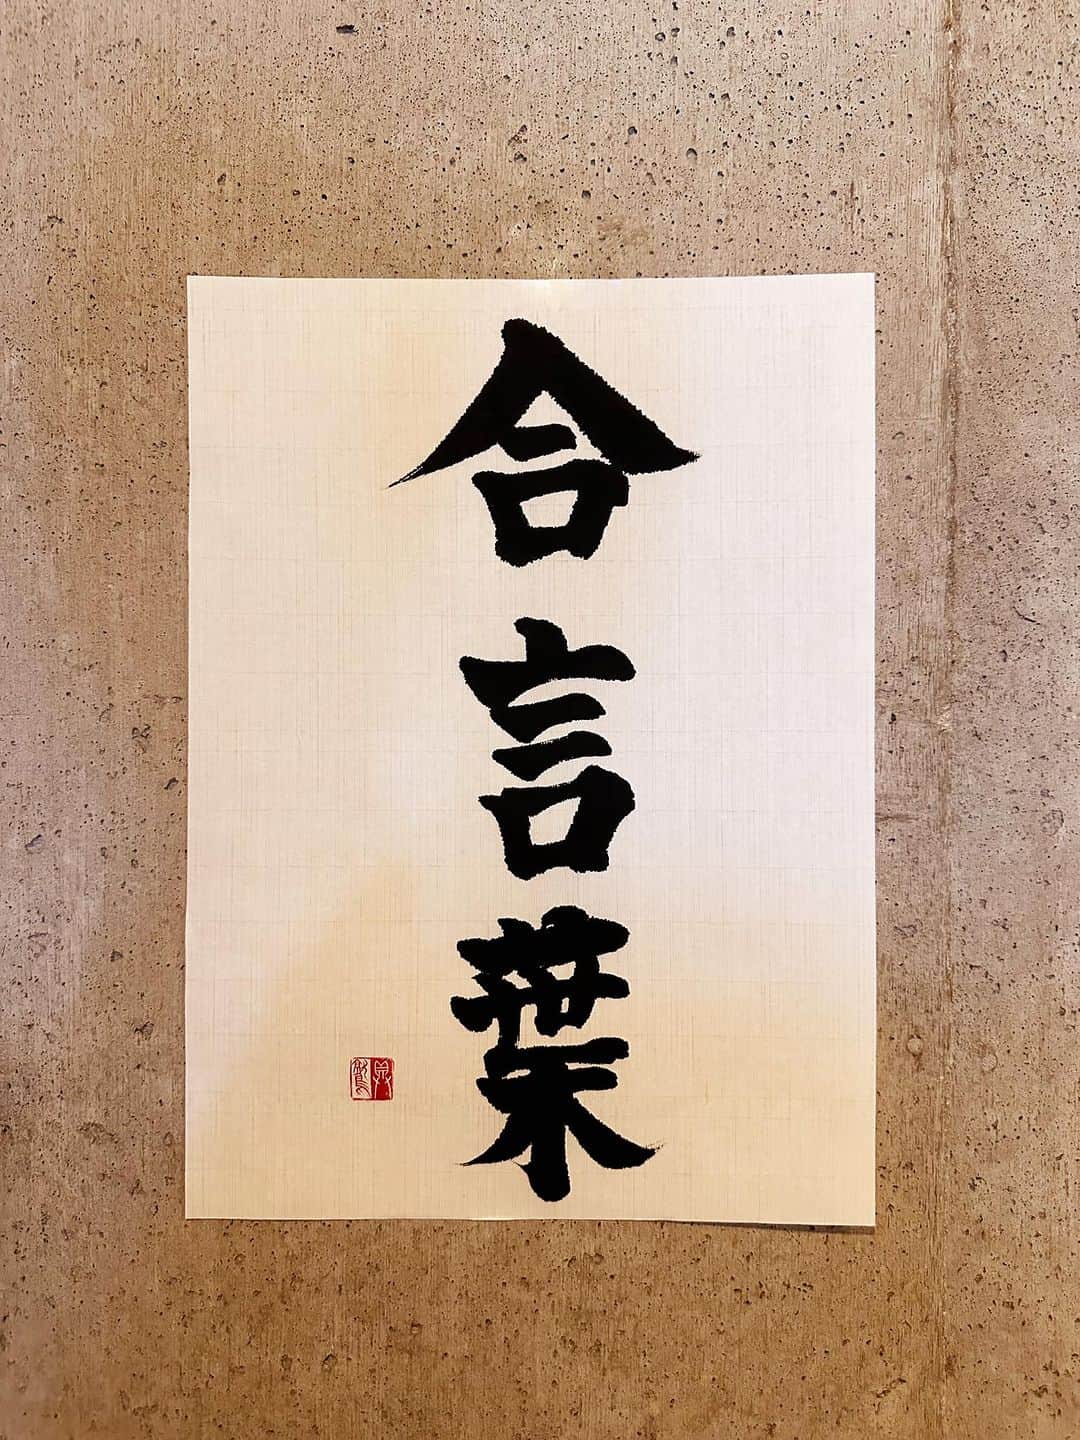 合言葉